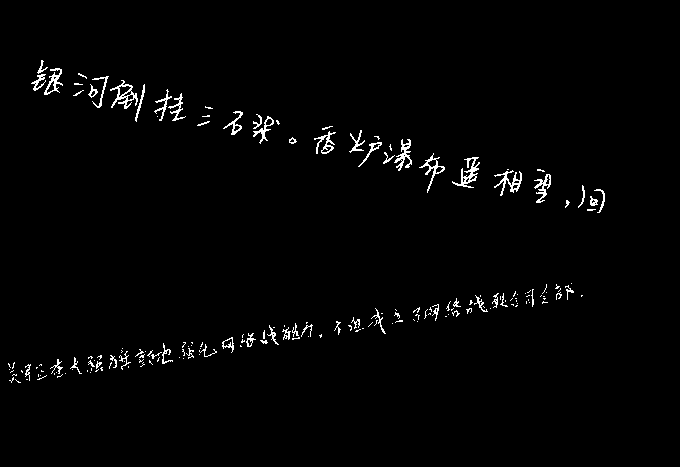 银河倒挂三石梁。香炉瀑布遥相望,回
美军正在大张旗鼓地强化网络战能力,不但成立了网络战联合司令部.